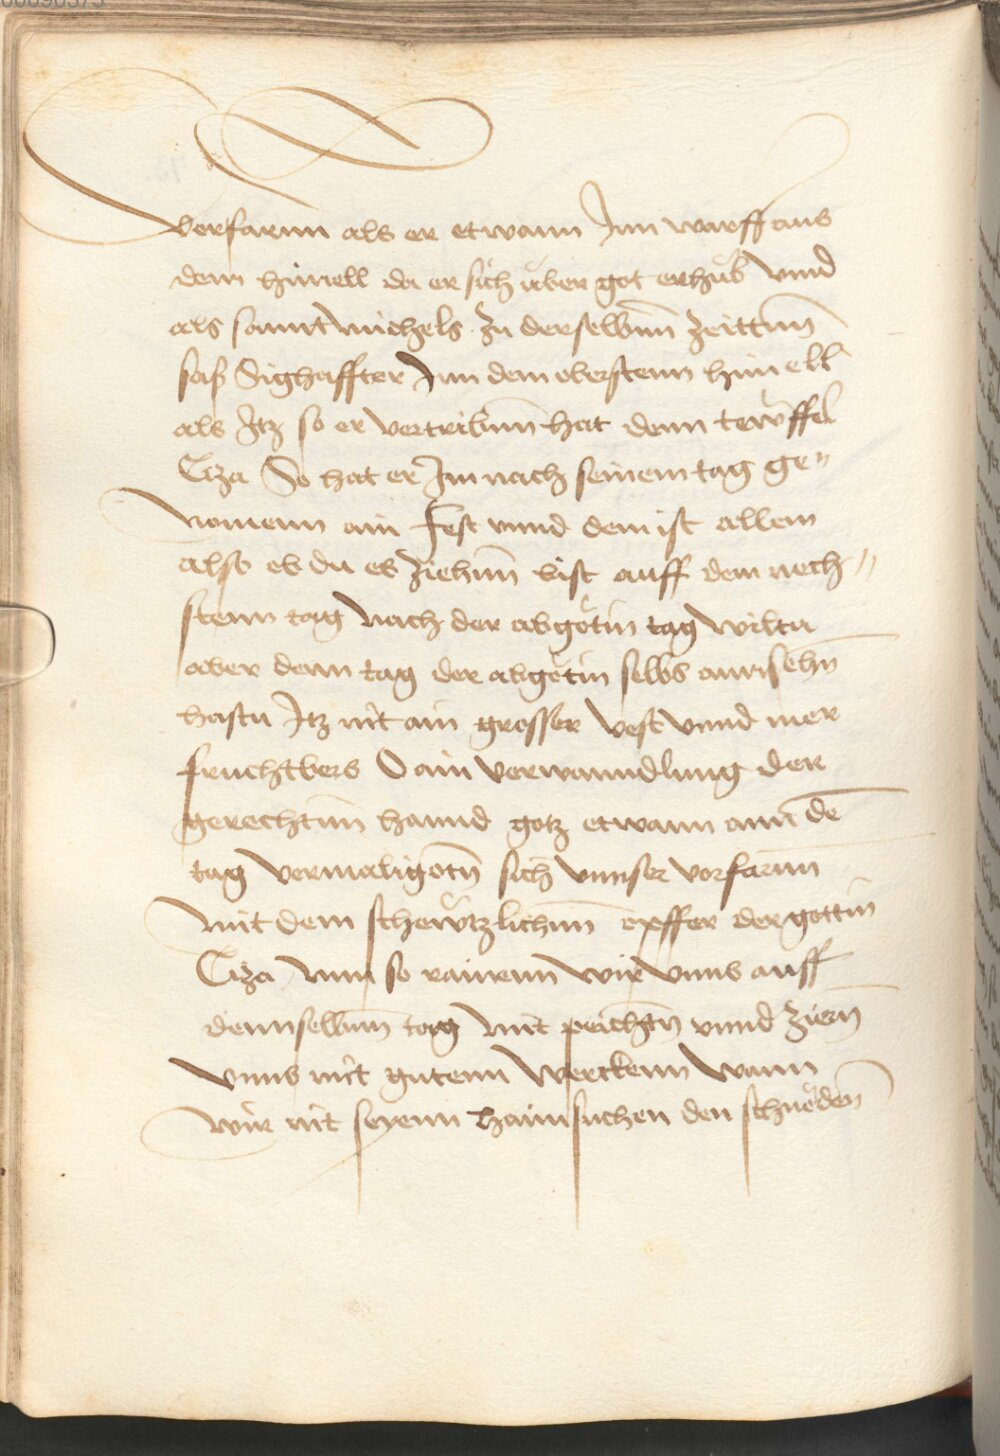 vorfarnn als er etwann Inn warff aus
dem himell da er sich über got erhüb vnnd
als sannt michels zu derselbnn zeittnn
saß Sighaffter Inn dem oberstenn himell
als Itz so er vertribnn hat denn tewffel
Ciza So hat er Im nach seinem tag ge"
nomenn ain fest vnnd dem ist allem
also ob du es ziehnn bist auff dem nech"
stenn tag nach der abgötin tag wiltu
aber denn tag der abgötin selbs annsehn
hastu Itz nit ain grosser vest vnnd mer
fruchtbers O ain verwanndlung der
gerechtnn hannd gotz etwann ann de
tag vermaligotn sich vnnser vorfarnn
mit dem schewtzlichnn opffer der gottin
Ciza nun so rainenn wir vnns auff
dennselbnn tag mit peichtn vnnd ziern
vnns mit gutenn werckenn wann
wir nit seyenn haimsuchen den schnöden